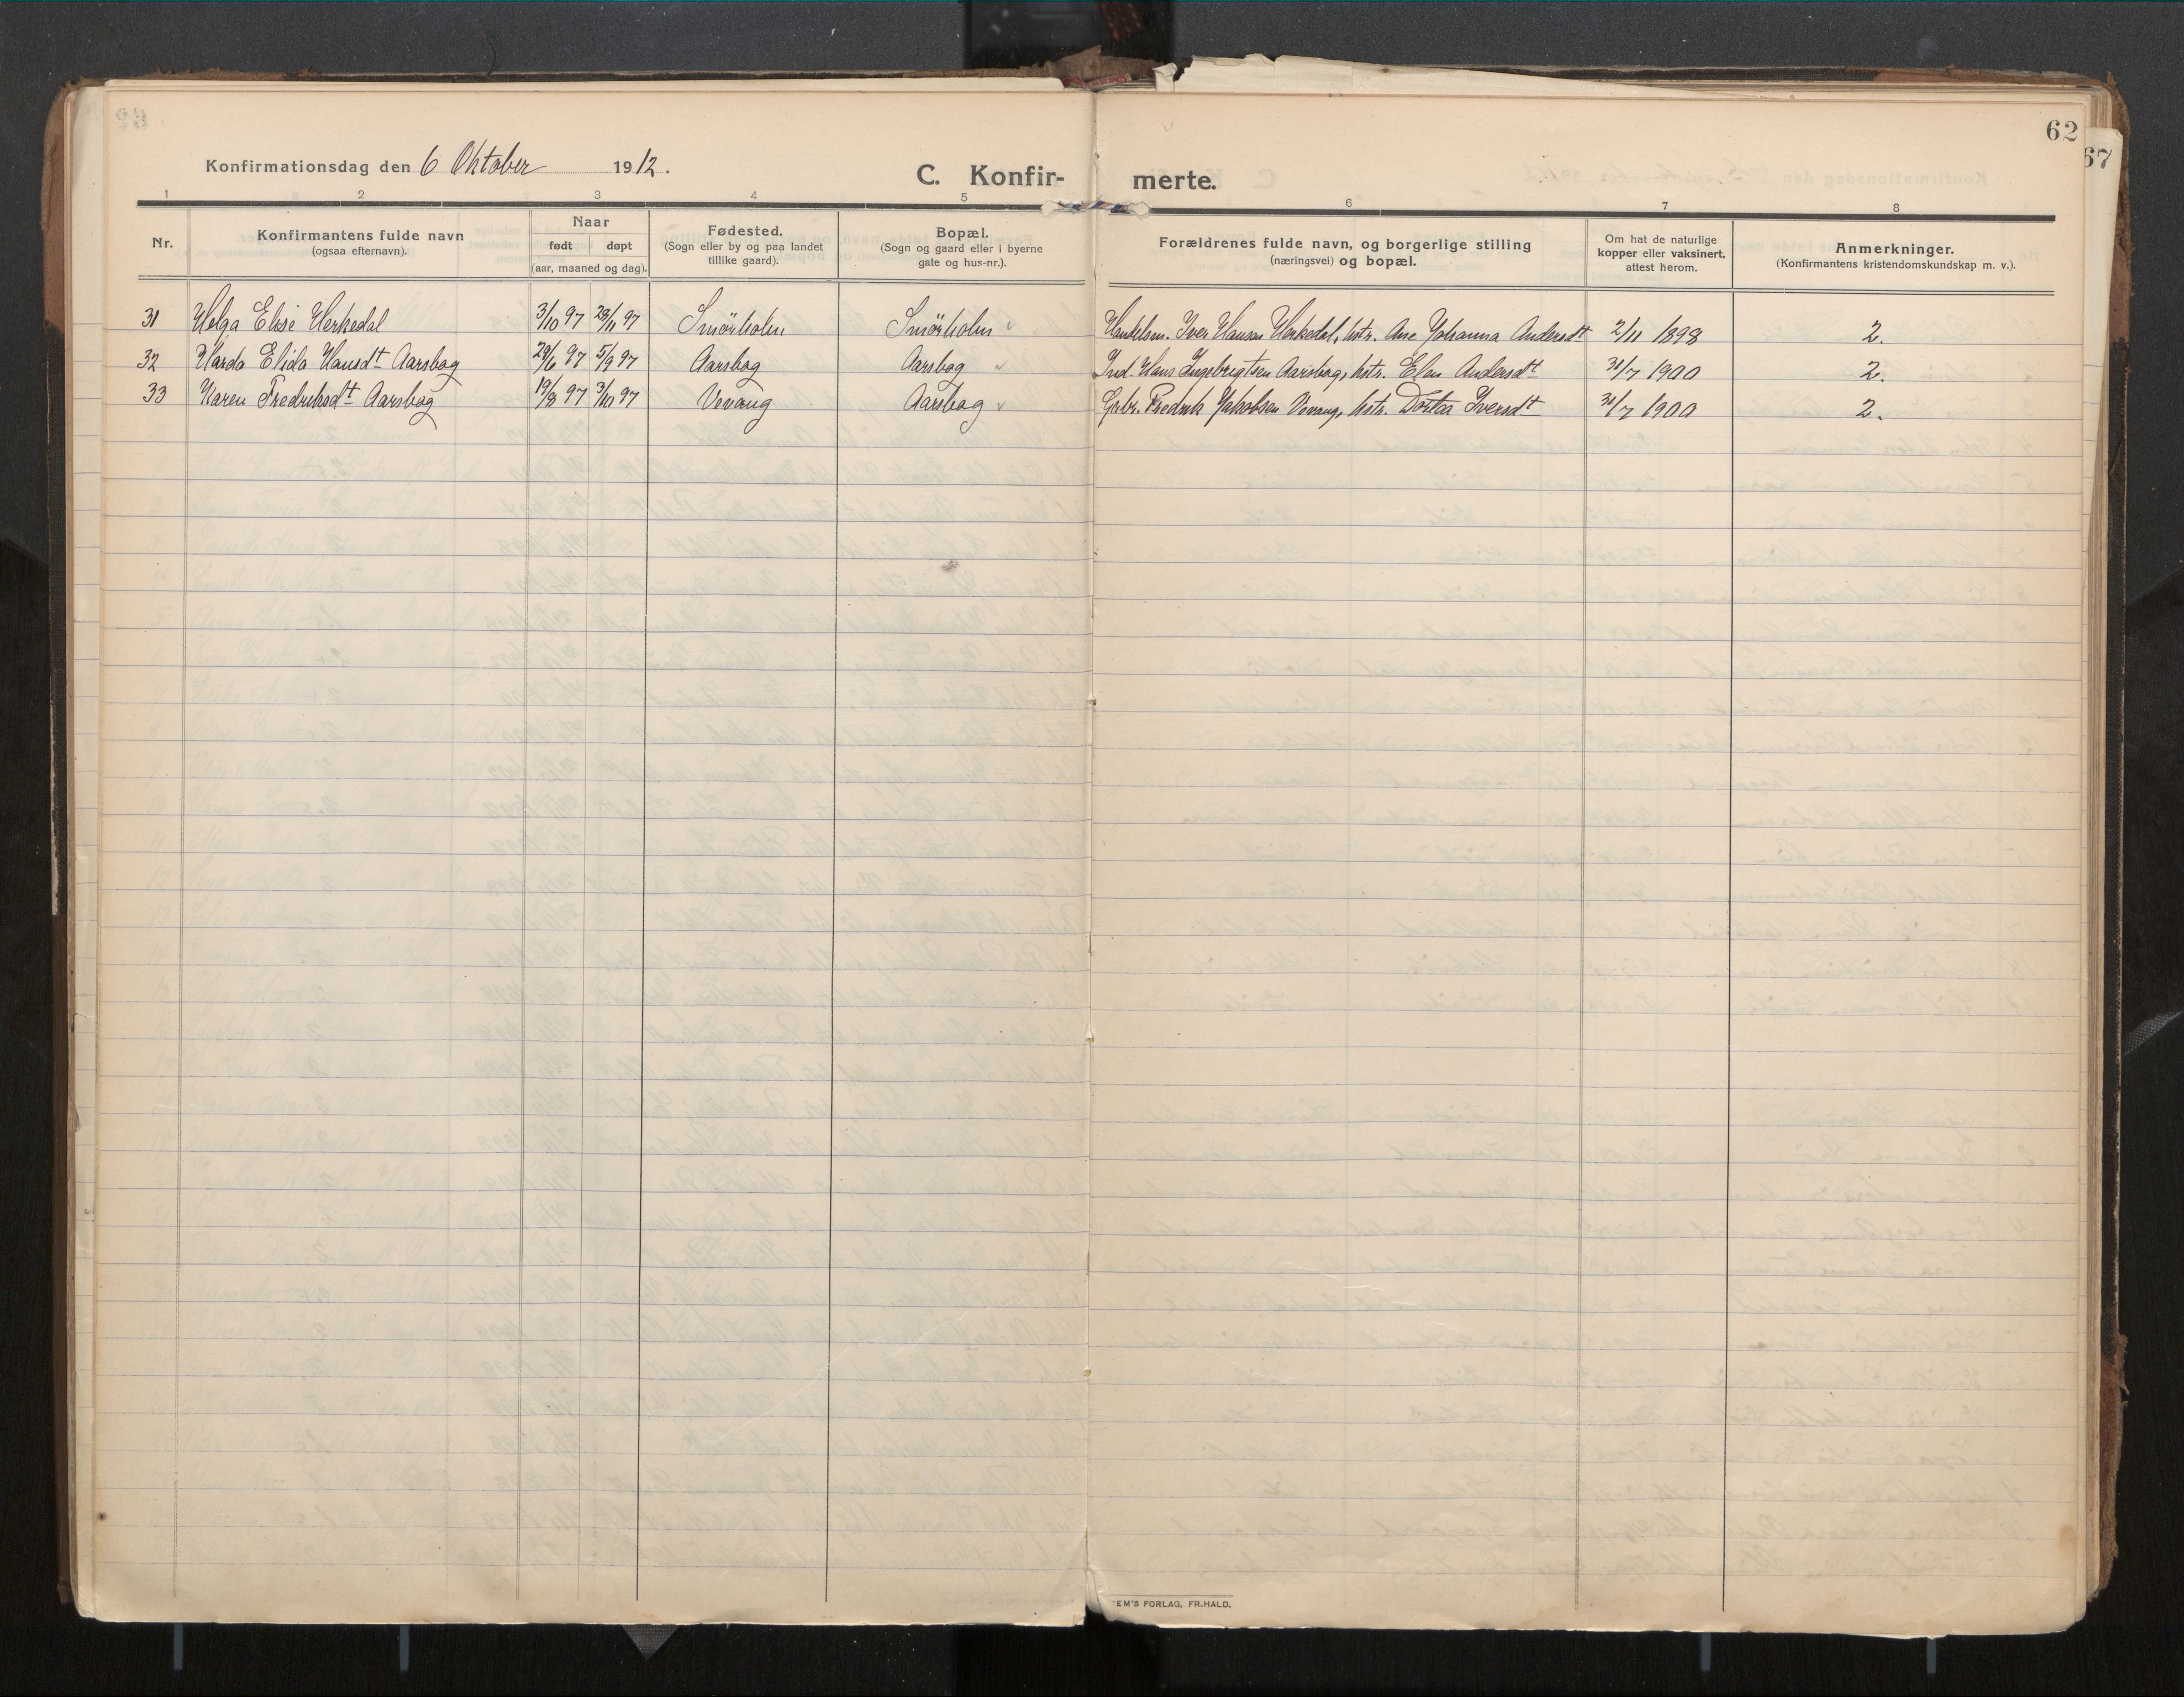 62
67
Konfirmationsdag den 6 Oktober 1912.
C. Konfir-
merte.
1 2 3 4 5 6 7 8
Nr.
Konfirmantens fulde navn
(ogsaa efternavn).
Naar
født døpt
(aar, maaned og dag).
Fødested.
(Sogn eller by og paa landet
tillike gaard).
Bopæl.
(Sogn og gaard eller i byerne
gate og hus-nr.).
Forældrenes fulde navn, og borgerlige stilling
(næringsvei) og bopæl.
Om hat de naturlige
kopper eller vaksinert,
attest herom.
Anmerkninger.
(Konfirmantens kristendomskundskap m. v.).
31 Helga Elise Herkedal 3/10 97 28/11 97 Smörholm Smörholm Handelsm. Iver Hansen Herkedal, hstr. Ane Johanna Andersdt 2/11 1898 2.
32 Harda Elida Hansdt Aarsbog 29/6 97 5/9 97 Aarsbog Aarsbog Ind. Hans Ingebrigtsen Aarsbog, hstr. Elen Andersdt 31/7 1900 2.
33 Karen Fredriksdt Aarsbog 19/8 97 3/10 97 Vevang Aarsbog Gbr. Fredrik Jakobsen Vevang, hstr. Dortea Iversdt 31/7 1900 2.
EM'S FORLAG, FR. HALD.